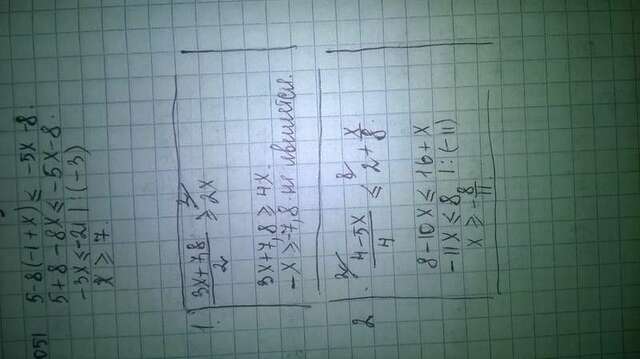 051 5-8(-1+x) ≤ -5x-8.
5+8-8x ≤ -5x-8.
-3x ≤ -21 | :(-3)
x ≥ 7.
1. (3x+7,8)/2 ≥ 2x
3x+7,8 ≥ 4x.
-x ≥ -7,8 не является.
2. (4-5x)/4 ≤ 2+x/8
8-10x ≤ 16+x
-11x ≤ 8 | :(-11)
x ≥ -8/11